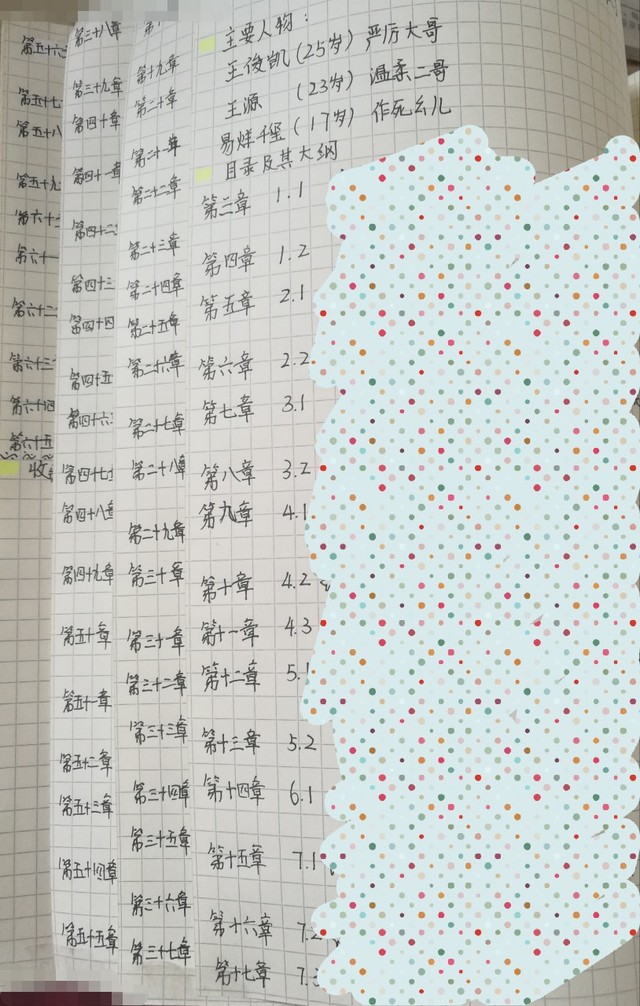 主要人物：
王俊凯（25岁）严厉大哥
王源（23岁）温柔二哥
易烊千玺（17岁）作死幺儿
目录及其大纲
第二章 1.1
第四章 1.2
第五章 2.1
第六章 2.2
第七章 3.1
第八章 3.2
第九章 4.1
第十章 4.2
第十一章 4.3
第十二章 5.1
第十三章 5.2
第十四章 6.1
第十五章 7.1
第十六章 7.2
第十七章 7.3
第十九章
第二十章
第二十一章
第二十二章
第二十三章
第二十四章
第二十五章
第二十六章
第二十七章
第二十八章
第二十九章
第三十章
第三十一章
第三十二章
第三十三章
第三十四章
第三十五章
第三十六章
第三十七章
第三十八章
第三十九章
第四十章
第四十一章
第四十二
第四十三
第四十四
第四十五
第四十六
第四十七
第四十八章
第四十九章
第五十章
第五十一章
第五十二章
第五十三章
第五十四章
第五十五章
第五十六
第五十七
第五十八
第五十九
第六十
第六十一
第六十二
第六十三
第六十四
第六十五
收